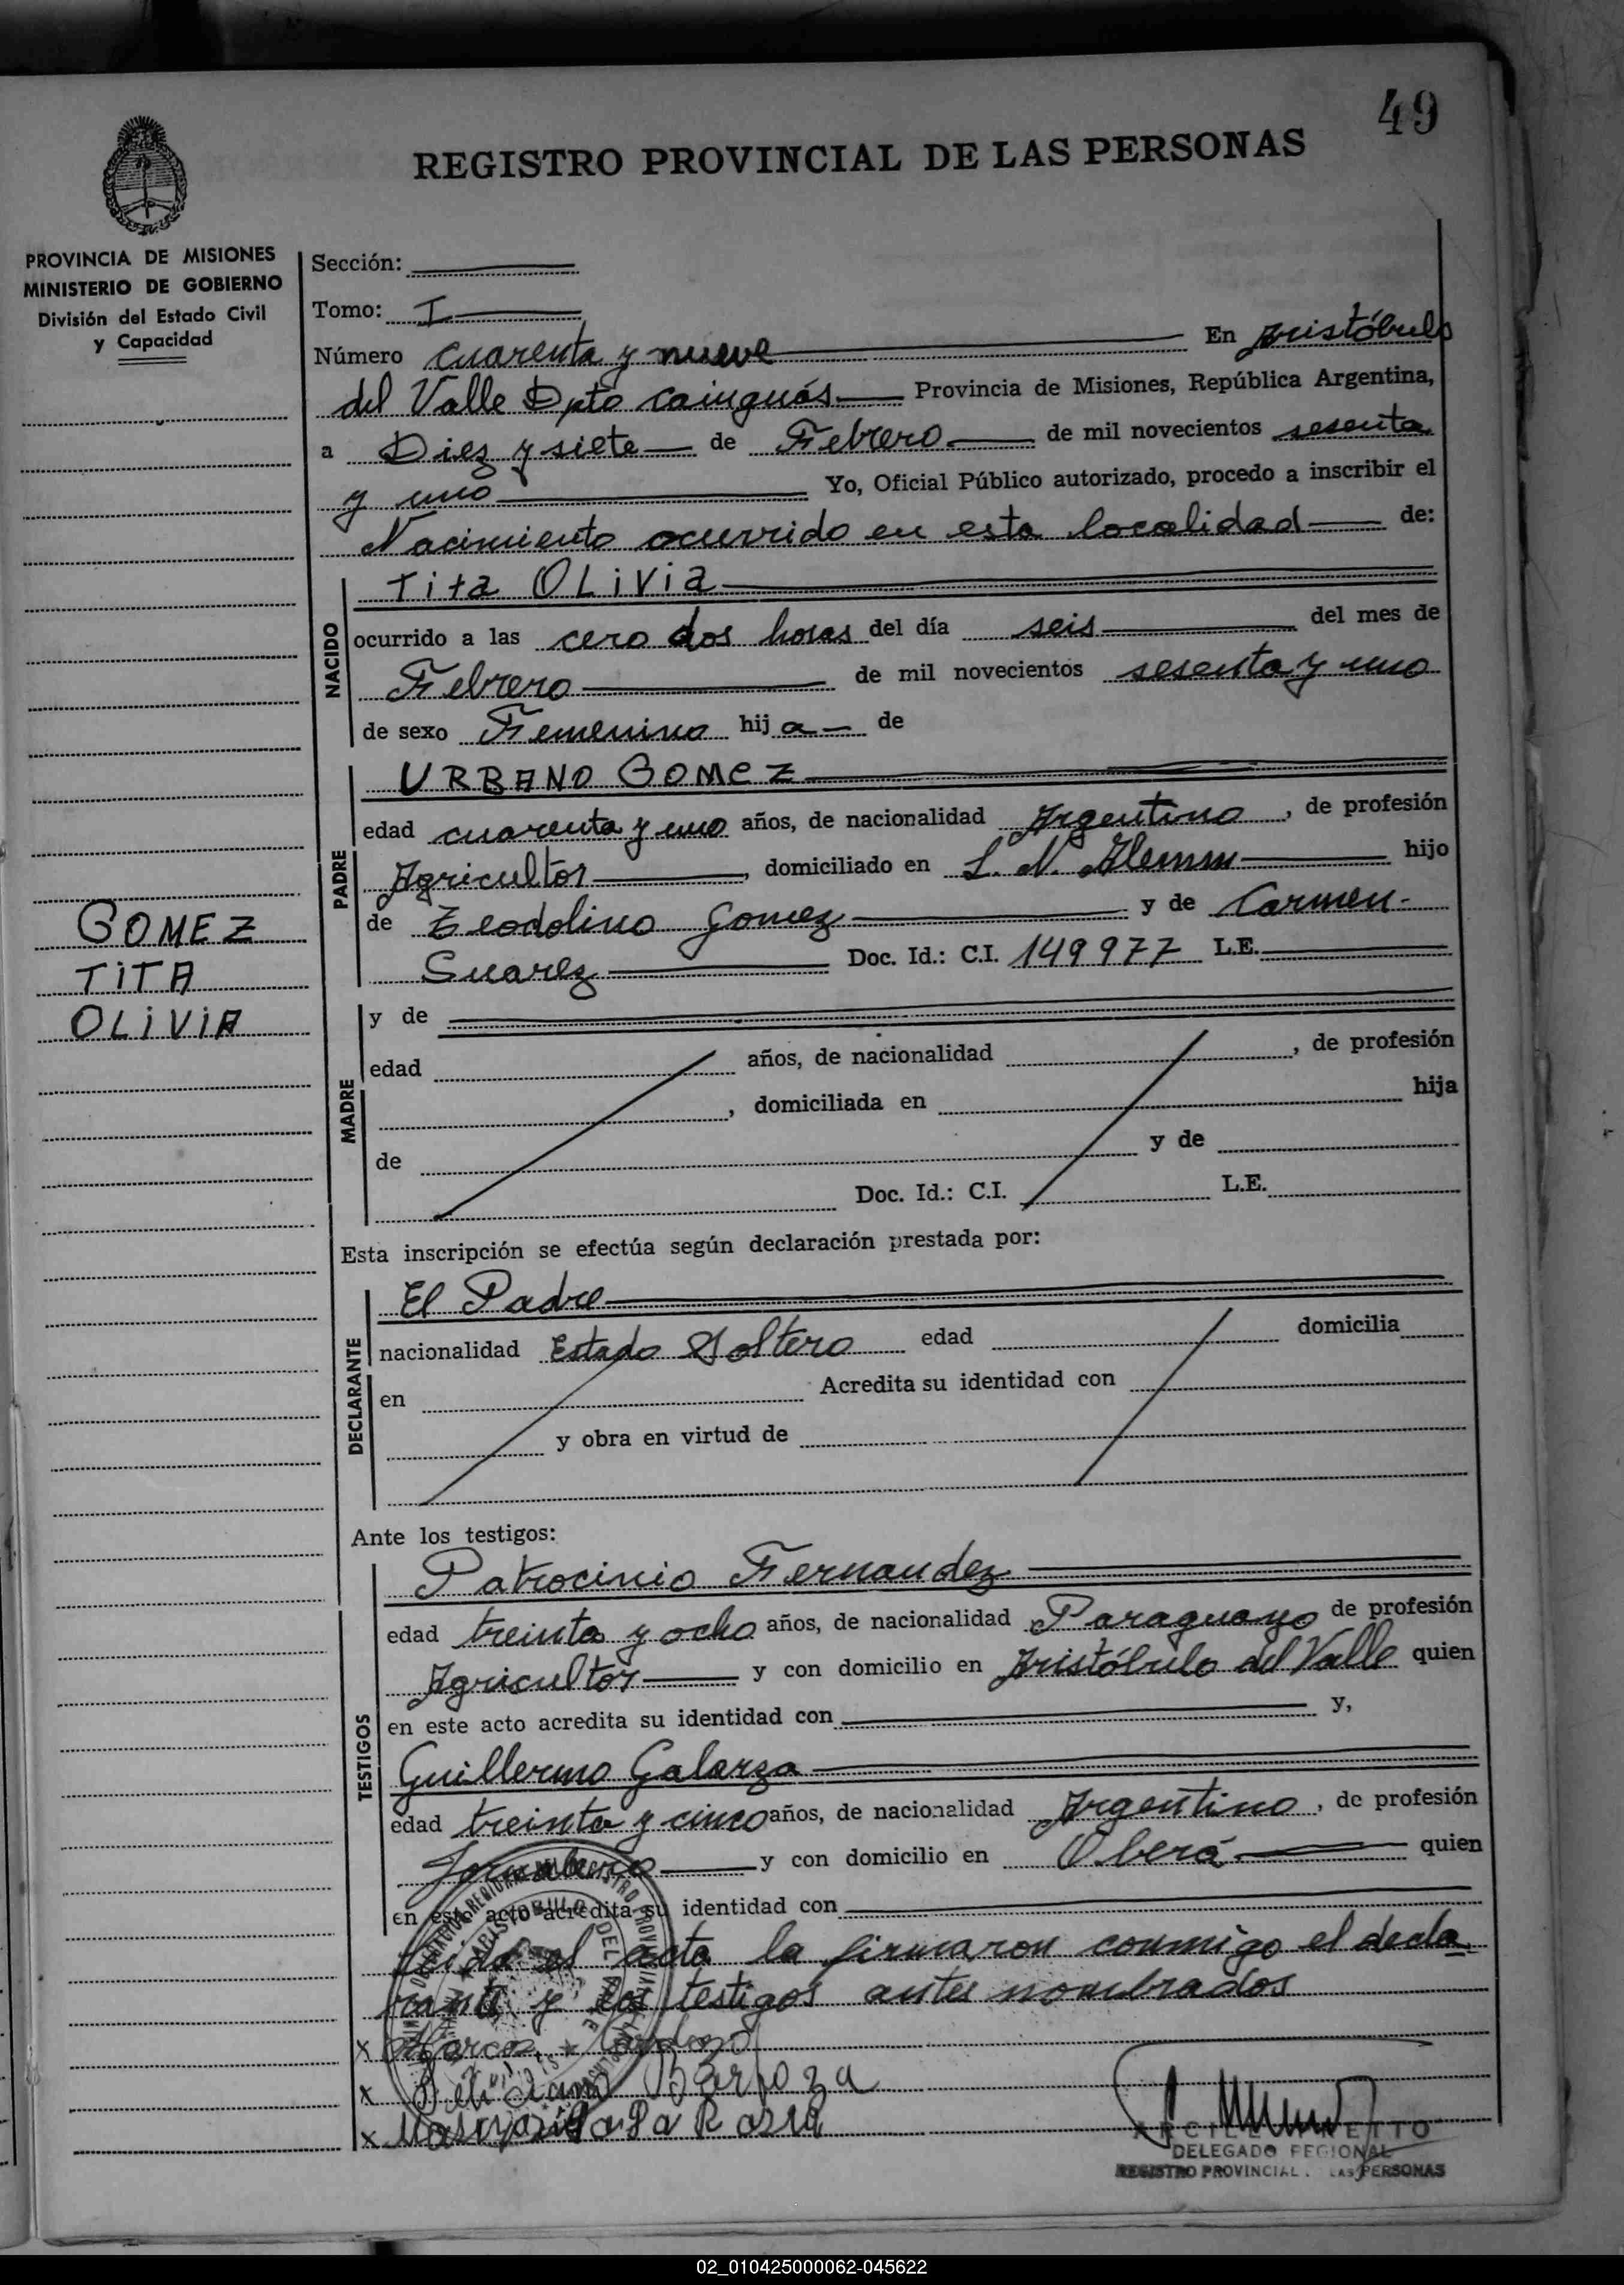 49
REGISTRO PROVINCIAL DE LAS PERSONAS
PROVINCIA DE MISIONES
MINISTERIO DE GOBIERNO
División del Estado Civil
y Capacidad
Sección:
Tomo: I
Número cuarenta y nueve En Aristóbulo
del Valle Dpto Cainguás Provincia de Misiones, República Argentina,
a Diez y siete de Febrero de mil novecientos sesenta
y uno Yo, Oficial Público autorizado, procedo a inscribir el
Nacimiento ocurrido en esta localidad de:
NACIDO
Tita OLiVia
ocurrido a las cero dos horas del día seis del mes de
Febrero de mil novecientos sesenta y uno
de sexo Femenino hija de
PADRE
URBANO GOMEZ
edad cuarenta y uno años, de nacionalidad Argentino, de profesión
Agricultor, domiciliado en L. N. Alemm hijo
de Teodolino Gomez y de Carmen
Suarez Doc. Id.: C.I. 149977 L.E.
GOMEZ
TITA
OLIVIA
MADRE
y de
edad años, de nacionalidad , de profesión
, domiciliada en hija
de y de
Doc. Id.: C.I. L.E.
Esta inscripción se efectúa según declaración prestada por:
DECLARANTE
El Padre
nacionalidad Estado Soltero edad domicilia
en Acredita su identidad con
y obra en virtud de
Ante los testigos:
TESTIGOS
Patrocinio Fernandez
edad treinta y ocho años, de nacionalidad Paraguayo de profesión
Agricultor y con domicilio en Aristóbulo del Valle quien
en este acto acredita su identidad con y,
Guillermo Galarza
edad treinta y cinco años, de nacionalidad Argentino, de profesión
Jornalero y con domicilio en Oberá quien
en este acto acredita su identidad con
leida el acta la firmaron conmigo el decla
rante y los testigos antes nombrados
x Marcos
x Barboza
x
DELEGADO REGIONAL
REGISTRO PROVINCIAL LAS PERSONAS
02_010425000062-045622